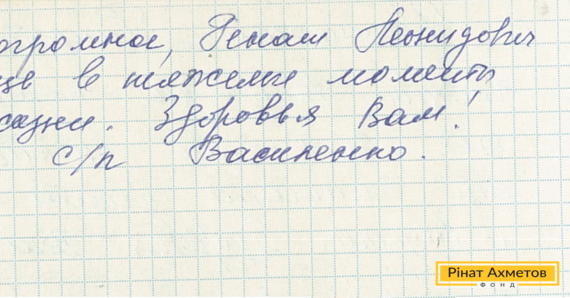 огромное, Ренат Леонидович
в тяжелые моменты
Здоровья Вам!
с/п Василенко.
Рінат Ахметов
ФОНД